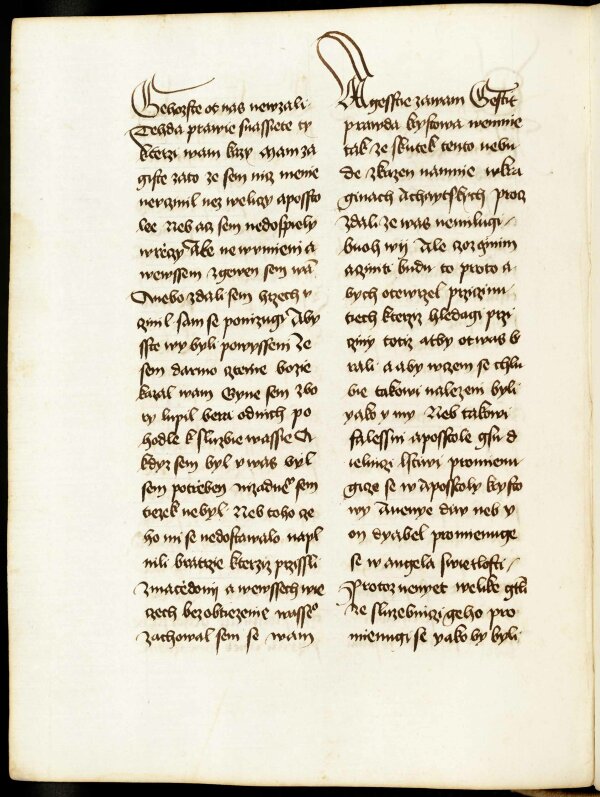 Gehozste ot nas newzali
Tehda prawie snassiete ty
kterzi wam kazy Mam za
giste zato ze sem nicz menie
nevczinil nez weliczy apossto
lee Neb acz sem nedospiely
wrzeczy Ale ne wvmieni a
wewssem zgewen sem wam
Anebo zdali sem hrzech v
czinil sam se ponizugi Aby
sste wy byli powysseni Ze
sem darmo cztenie bozie
kazal wam Gyne sem zbo
ry lupil bera odnich po
hodle k sluzbie wassie A
kdyz sem byl v was byl
sem potrzeben nizadne° sem
tiezek nebyl Neb toho cze
ho mi se nedostawalo napl
nili bratrzie kterziz przissli
zmacedonij a wewssech wie
czech bez obtiezenie wasse°
zachowal sem se wam
A gesstie zawam Gestit
prawda kystowa wemnie
tak ze skutek tento nebu
de zkazen namnie wkra
ginach Achaytskych procz
zdali ze was nemilugi
buoh wij Ale coz czinim
a cziniti budu to proto a
bych otewrzel prziczinu
tiech kterziz hledagi przi
cziny totiz atby ot was b
rali a aby wczem se chlu
bie takowi nalezeni byli
yako y my Neb takowi
falessni aposstole gsu d
ielniczi lstiwi promieni
gicze se w Aposstoly krysto
wy Anenye diw neb y
on dyabel promienuge
se w angela swietlosti
Protoz nenyet welike gtli
ze sluzebniczi geho pro
mienugi se yako by byli